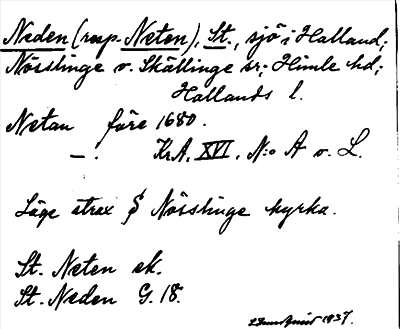 Neden (resp. Neten), St., sjö i Halland;
Nösslinge o. Skällinge sr; Himle hd;
Hallands l.
Netan före 1680.
— . Kr.A. XVI, N:o A o. L.
Läge strax S Nösslinge kyrka.
St. Neten ek.
St. Neden G. 18.
1937.